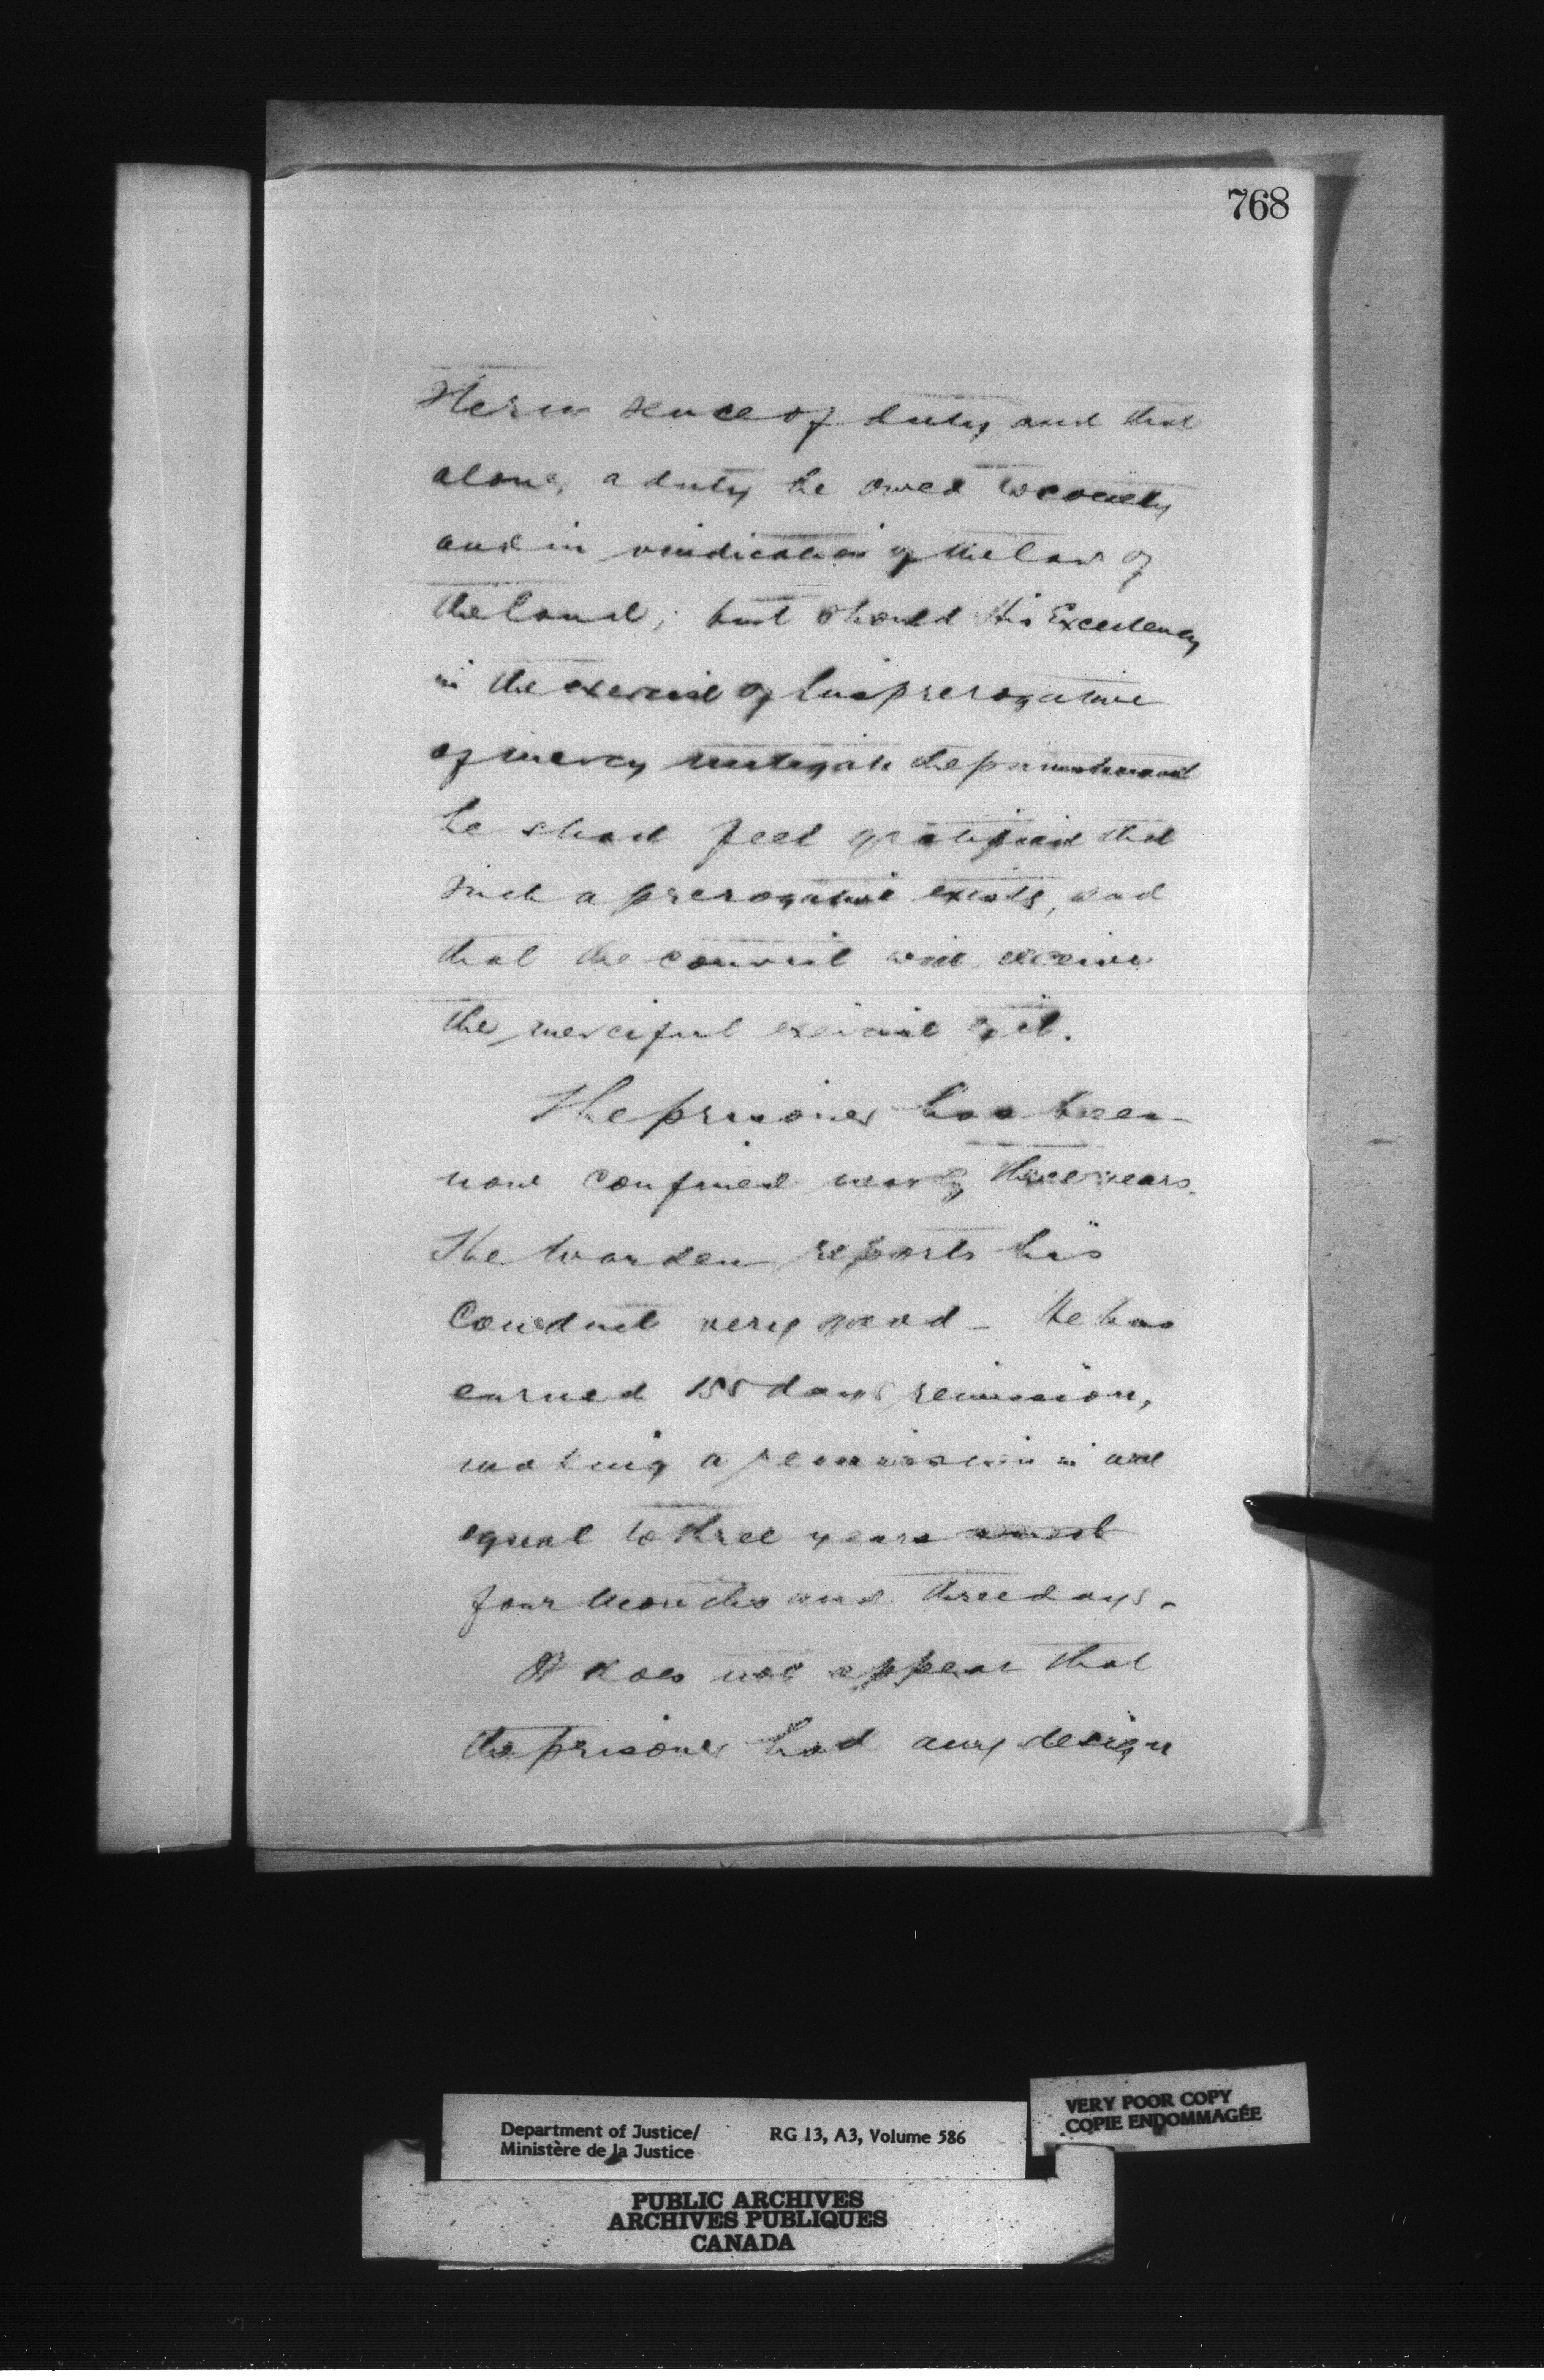 768
Stern sence of duty and that
alone, a duty he owed to society
and in vindication of the law of
the land; but should His Excellency
in the exercise of his prerogative
of mercy mitigate the punishment
he shall feel gratified that
such a prerogative exists, and
that the convict will receive
the merciful exercise of it.
The prisoner has been
now confined nearly three years.
The Warden reports his
Conduct very good - He has
earned 155 days remission,
making a remission in all
equal to three years
four months and three days.
It does not appear that
the prisoner had any design
Department of Justice/
Ministère de la Justice
RG 13, A3, Volume 586
VERY POOR COPY
COPIE ENDOMMAGÉE
PUBLIC ARCHIVES
ARCHIVES PUBLIQUES
CANADA